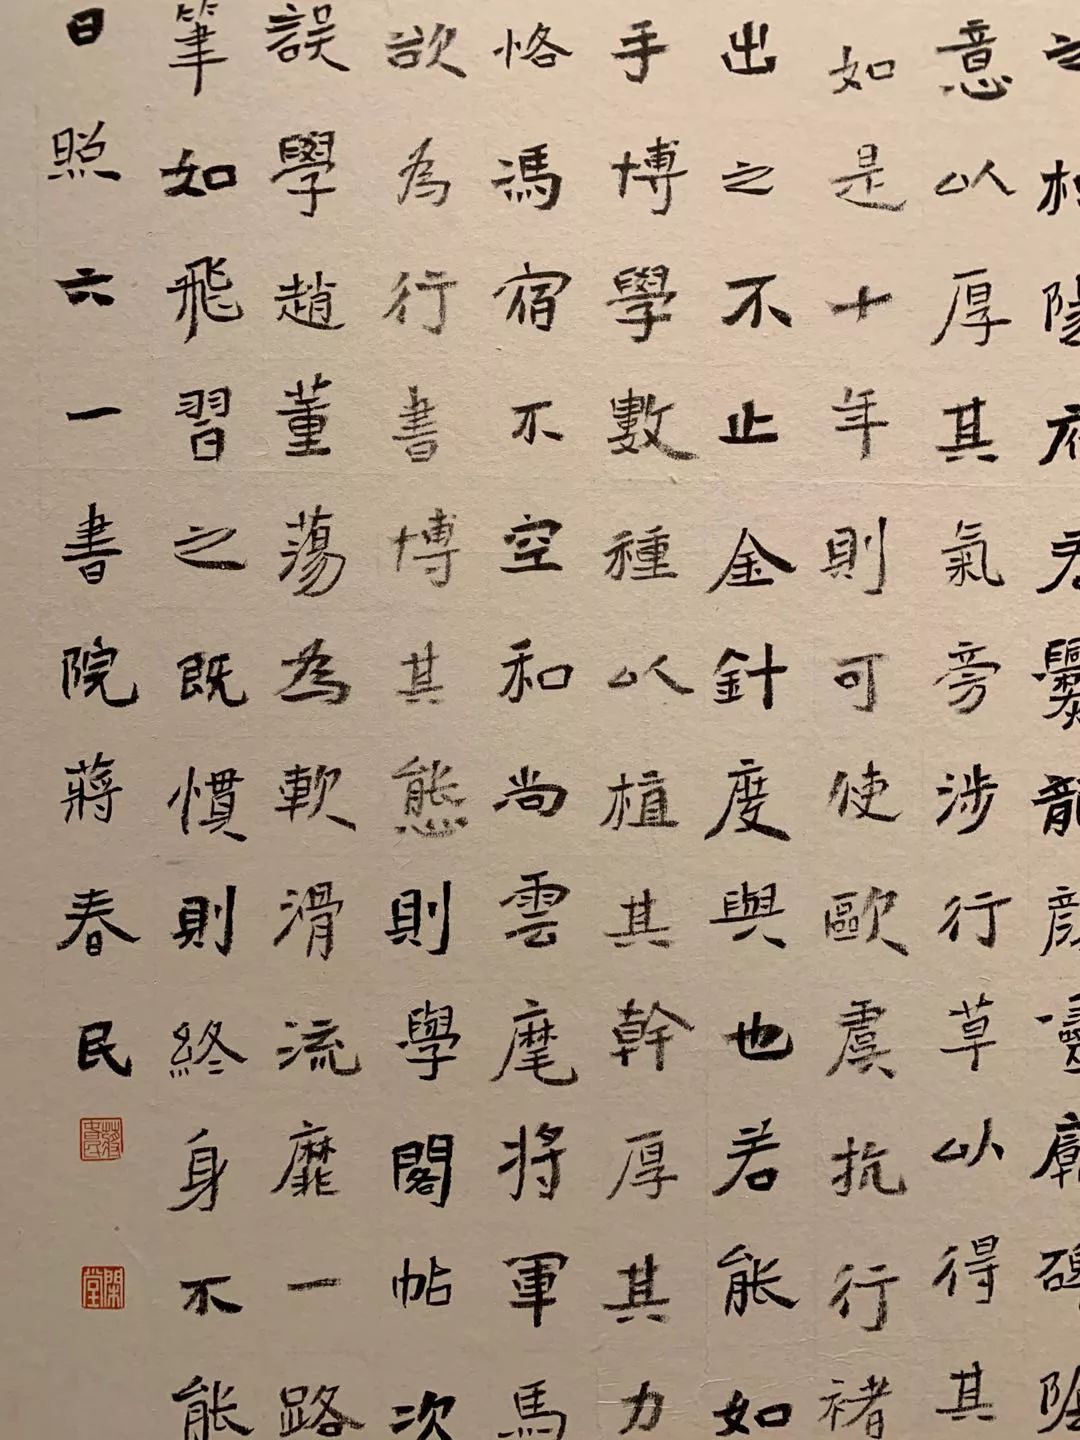 之枳陽府君爨龍顏靈廟碑陰
意以厚其氣旁涉行草以得其
如是十年則可使歐虞抗行褚
出之不止金針度與也若能如
手博學數種以植其幹厚其力
恪馮宿不空和尚雲麾將軍馬
欲為行書博其態則學閣帖次
誤學趙董蕩為軟滑流靡一路
筆如飛習之既慣則終身不能
日照六一書院蔣春民
蔣春民
閑堂